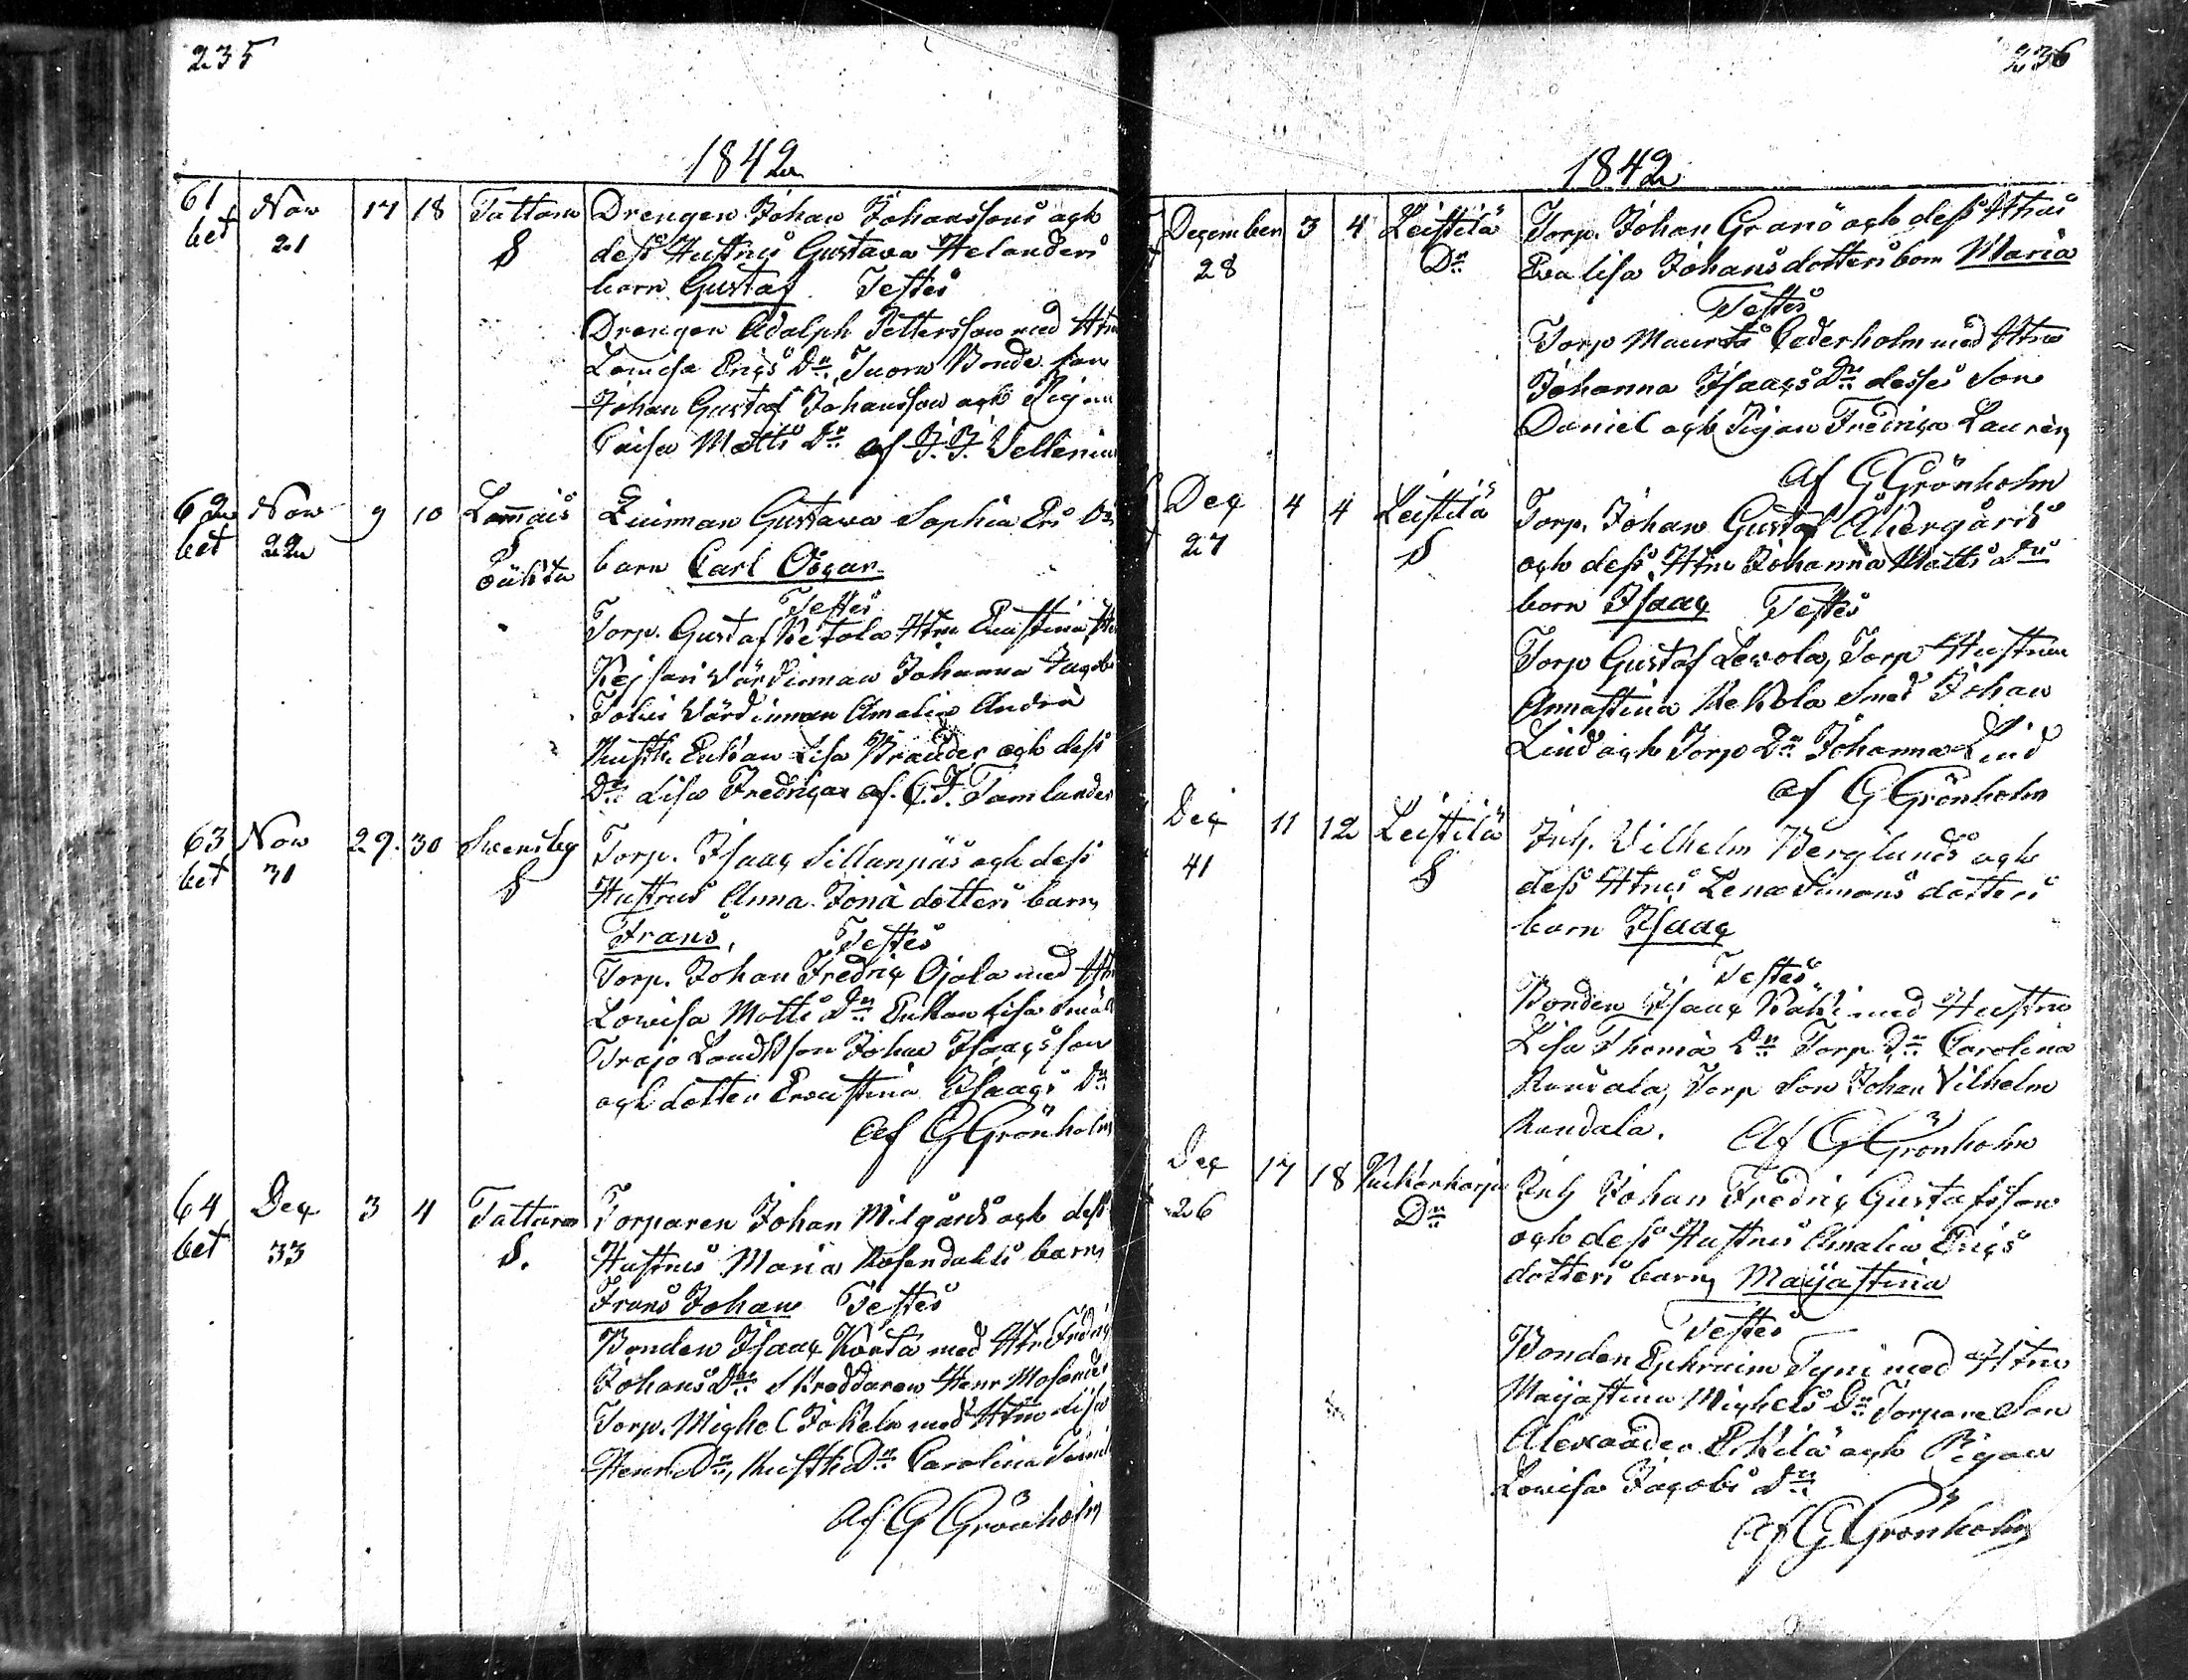 235
1842
61 Nov 17 18 Tattara Drengen Johan Johanssons och
bet 21 S dess Hustrus Gustava Helanders
barn Gustaf Testes
Drengen Adolph Pettersson med Htru
Lowisa Erics Dr. Suora Bonde Son
Johan Gustaf Johansson och Pigan
Caisa Matts Dr af J. J. Vellenius
62 Nov 9 10 Lammais Qvinnan Gustava Sophia Ers Dr
bet 22 S barn Carl Oscar
Testes
Torp. Gustaf Ketola Htru Evastina
Kejsari Värdinnan Johanna Jacobs
Värdinnan Amalia Andrs
Enkan Lisa Brander och dess
Dr Lisa Fredrica af C. J. Tamlander
63 Nov 29 30 Svensby Torp. Isaac Sillanpäs och dess
bet 31 S Hustrus Anna Jonä dotters barn
Frans, Testes
Torp. Johan Fredric Ojala med Htru
Lowisa Matts Dr Enkan Lisa
Johan Isaacsson
och dotter Evastina Isaacs Dr
Af G Grönholm
64 Dec 3 4 Tattara Torparen Johan Milgårds och dess
bet 33 S. Hustrus Maria Rosendahls barn
Frans Johan Testes
Bonden Isaac med Htru Fredric
Johans Dr Skreddaren Henr
Torp. Michel Jokela med Htru Lisa
Henr. Dr, Dr Carolina
Af G Grönholm
236
1842
December 3 4 Leistilä Torp. Johan Granö och dess Htrus
28 Dr Eva Lisa Johansdotters barn Maria
Testes
Torp Maurits Cederholm med Htru
Johanna Isaacs Dr desses Son
Daniel och Pigan Fredrica Lauren
Af G Grönholm
Dec 4 4 Leistilä Torp. Johan Gustaf Åkergårds
27 S och dess Htru Johanna Matts Drs
barn Isaac Testes
Torp Gustaf Levola, Torp Hustrun
Annastina Kekola Smed Johan
Lind och Torp Dr Johanna Lind
af G Grönholm
Dec 11 12 Leistilä Inh. Vilhelm Berglunds och
41 S dess Htrus Lena Simons dotters
barn Isaac
Testes
Bonden Isaac med Hustru
Lisa Thomä Dr Torp. Dr Carolina
Randala, Torp Son Johan Vilhelm
Randala. Af G Grönholm
Dec 17 18 Kuckonharja Inh Johan Fredric Gustafsson
26 Dr och dess Hustrus Amalia Erics
dotters barn Maijastina
Testes
Bonden Ephraim Tyni med Htru
Maijastina Michels Dr Torpare Son
Alexander Erkilä och Pigan
Lowisa Jacobs Dr
Af G Grönholm